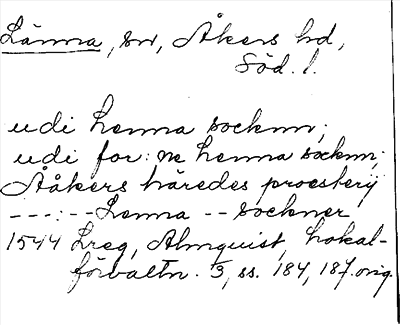 Länna, sn, Åkers hd,
Söd. l.
udi henna socknn;
udi for:ne henna socknn;
Ååkers häredes proesterij
---:-- Lenna -- sockner
1544 Lreg, Almquist, Lokal-
förvaltn. 3, ss. 184, 187. orig.